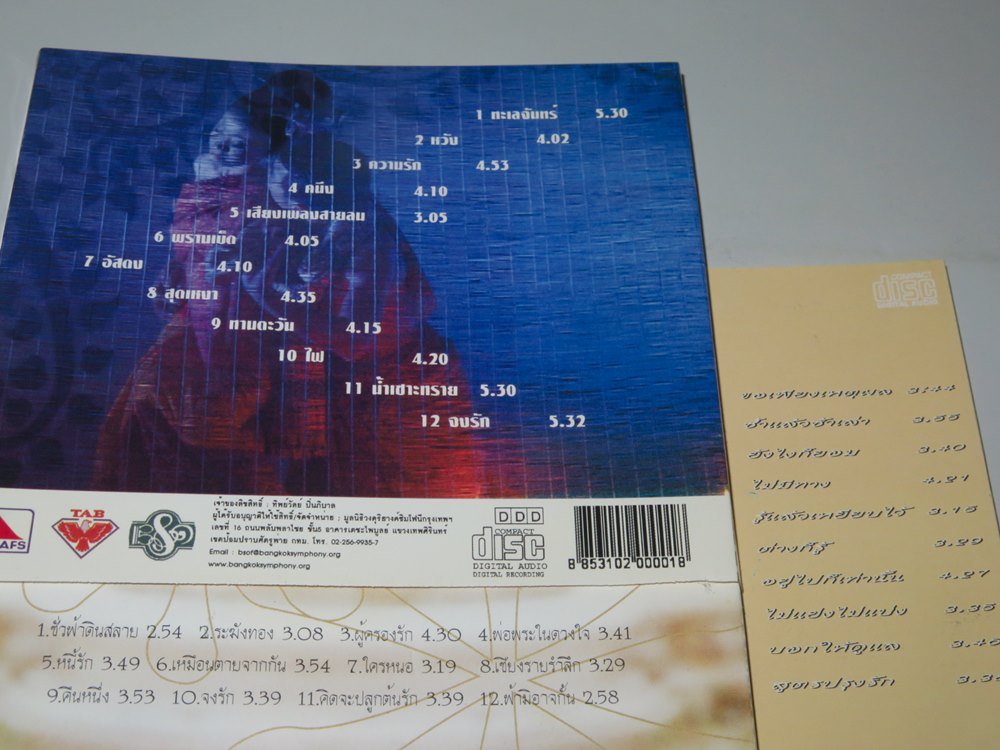 1 ทะเลจันทร์ 5.30
2 หวัง 4.02
3 ความรัก 4.53
4 คนึง 4.10
5 เสียงเพลงสายลม 3.05
6 พรานเบ็ด 4.05
7 อัสดง 4.10
8 สุดเหงา 4.35
9 ทานตะวัน 4.15
10 ไฟ 4.20
11 น้ำเซาะทราย 5.30
12 จงรัก 5.32
AFS
TAB
เจ้าของลิขสิทธิ์ : ทิพย์วัลย์ ปิ่นภิบาล
ผู้ได้รับอนุญาติให้ใช้สิทธิ์/จัดจำหน่าย : มูลนิธิวงดุริยางค์ซิมโฟนีกรุงเทพฯ
เลขที่ 16 ถนนพลับพลาไชย ชั้น5 อาคารเคชะไพบูลย์ แขวงเทพศิรินทร์
เขตป้อมปราบศัตรูพ่าย กทม. โทร. 02-256-9935-7
Email : bsof@bangkoksymphony.org
www.bangkoksymphony.org
DDD
COMPACT
disc
DIGITAL AUDIO
DIGITAL RECORDING
8 853102 000018
1.ชั่วฟ้าดินสลาย 2.54 2.ระฆังทอง 3.08 3.ผู้ครองรัก 4.30 4.พ่อพระในดวงใจ 3.41
5.หนี้รัก 3.49 6.เหมือนตายจากกัน 3.54 7.ใครหนอ 3.19 8.เชียงรายรำลึก 3.29
9.คืนหนึ่ง 3.53 10.จงรัก 3.39 11.คิดจะปลูกต้นรัก 3.39 12.ฟ้ามิอาจกั้น 2.58
COMPACT
disc
DIGITAL AUDIO
ขอเพียงเหตุผล 3:44
ช้ำแล้วช้ำเล่า 3.55
ยังไงก็ยอม 3.40
ไม่มีทาง 4.21
รู้แล้วเหยียบไว้ 3.15
ห่างก็รู้ 3.29
อยู่ไปก็เท่านั้น 4.27
ไม่แย่งไม่แบ่ง 3.35
บอกให้ดูแล
สูตรปรุงรัก